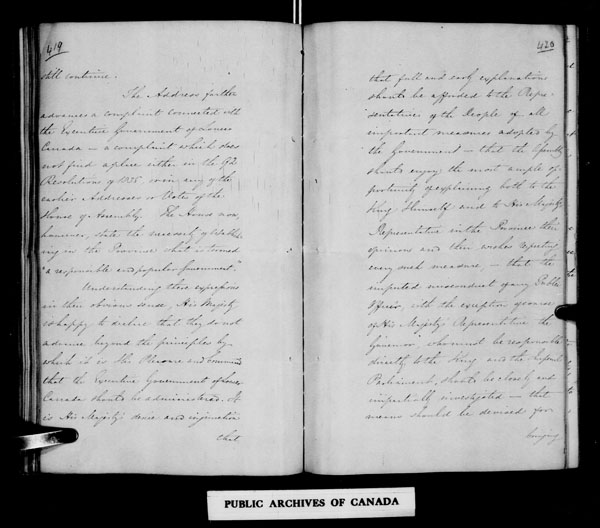 419
still continue.
The Address further
advances a complaint connected with
the Executive Government of Lower
Canada — a complaint which does
not find a place either in the 92
Resolutions of 183, or in any of the
earlier Addresses or Votes of the
House of Assembly. The House now,
however, state the necessity of
in the Province what is termed
"a responsible and popular Government."
Understanding these expressions
in their obvious sense, His Majesty
is happy to declare that they do not
advance beyond the principles by
which it is His Pleasure and Command
that the Executive Government of Lower
Canada should be administered. It
is His Majesty's desire and injunction
that
420
that full and early explanations
should be afforded to the Repre-
sentatives of the People of all
important measures adopted by
the Government — that the
should enjoy the most ample op-
portunity of explaining both to the
King Himself and to His Majesty's
Representative in the Province their
opinions and their wishes respecting
every such measure, — that the
imputed misconduct of any Public
Officer, with the exception of
of His Majesty's Representative the
Governor, who must be responsible
directly to the King and the
Parliament, should be closely and
impartially investigated — that
means should be devised for
bringing
PUBLIC ARCHIVES OF CANADA